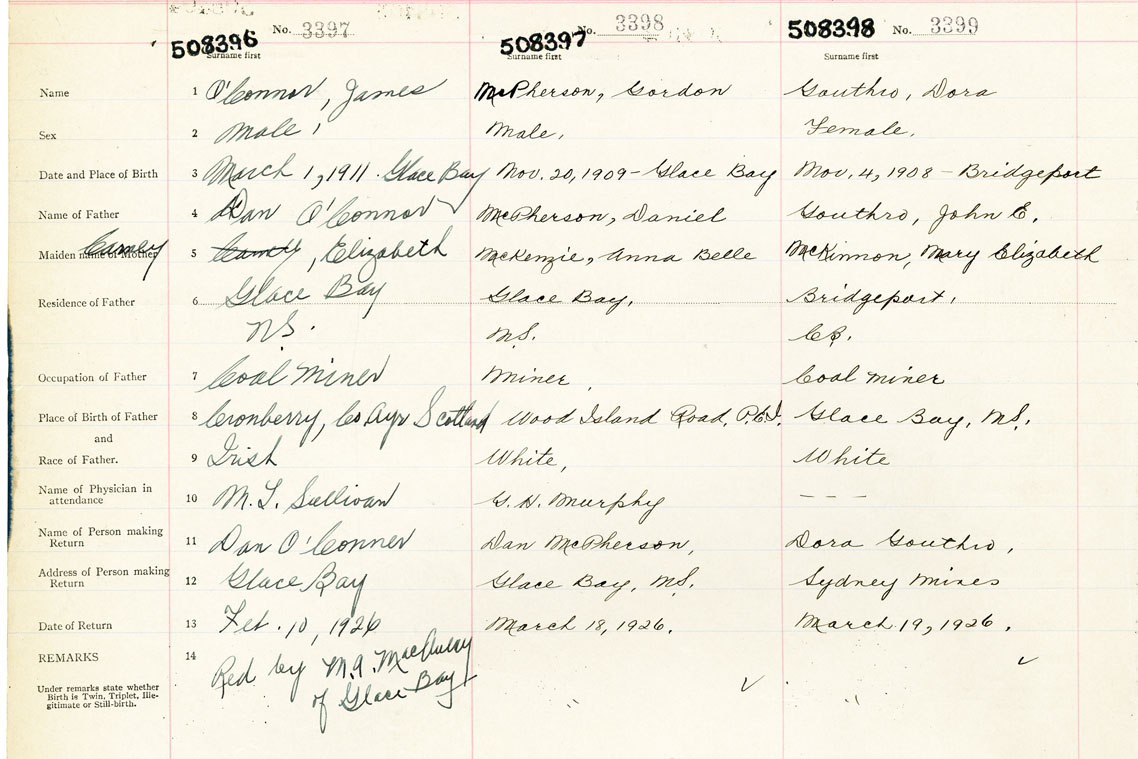 508396 No. 3397 508397 No. 3398 508398 No. 3399
Surname first Surname first Surname first
Name 1 O'Connor, James McPherson, Gordon Gouthro, Dora
Sex 2 Male, Male, Female,
Date and Place of Birth 3 March 1, 1911 Glace Bay Nov. 20, 1909 - Glace Bay Nov. 4, 1908 - Bridgeport
Name of Father 4 Dan O'Connor McPherson, Daniel Gouthro, John E.
Maiden name of Mother Camey 5 Camey, Elizabeth McKenzie, Anna Belle McKinnon, Mary Elizabeth
Residence of Father 6 Glace Bay Glace Bay, Bridgeport,
N.S. N.S. C.B.
Occupation of Father 7 Coal Miner Miner, Coal miner
Place of Birth of Father 8 Cronberry, Co Ayr Scotland Wood Island Road, P.E.I. Glace Bay, N.S.
and
Race of Father. 9 Irish White, White
Name of Physician in
attendance 10 M.T. Sullivan G.H. Murphy - - -
Name of Person making
Return 11 Dan O'Conner Dan McPherson, Dora Gouthro,
Address of Person making
Return 12 Glace Bay Glace Bay, N.S. Sydney Mines
Date of Return 13 Feb. 10, 1926 March 18, 1926. March 19, 1926.
REMARKS 14 Red by M.A. of Glace Bay
Under remarks state whether
Birth is Twin, Triplet, Ille-
gitimate or Still-birth.